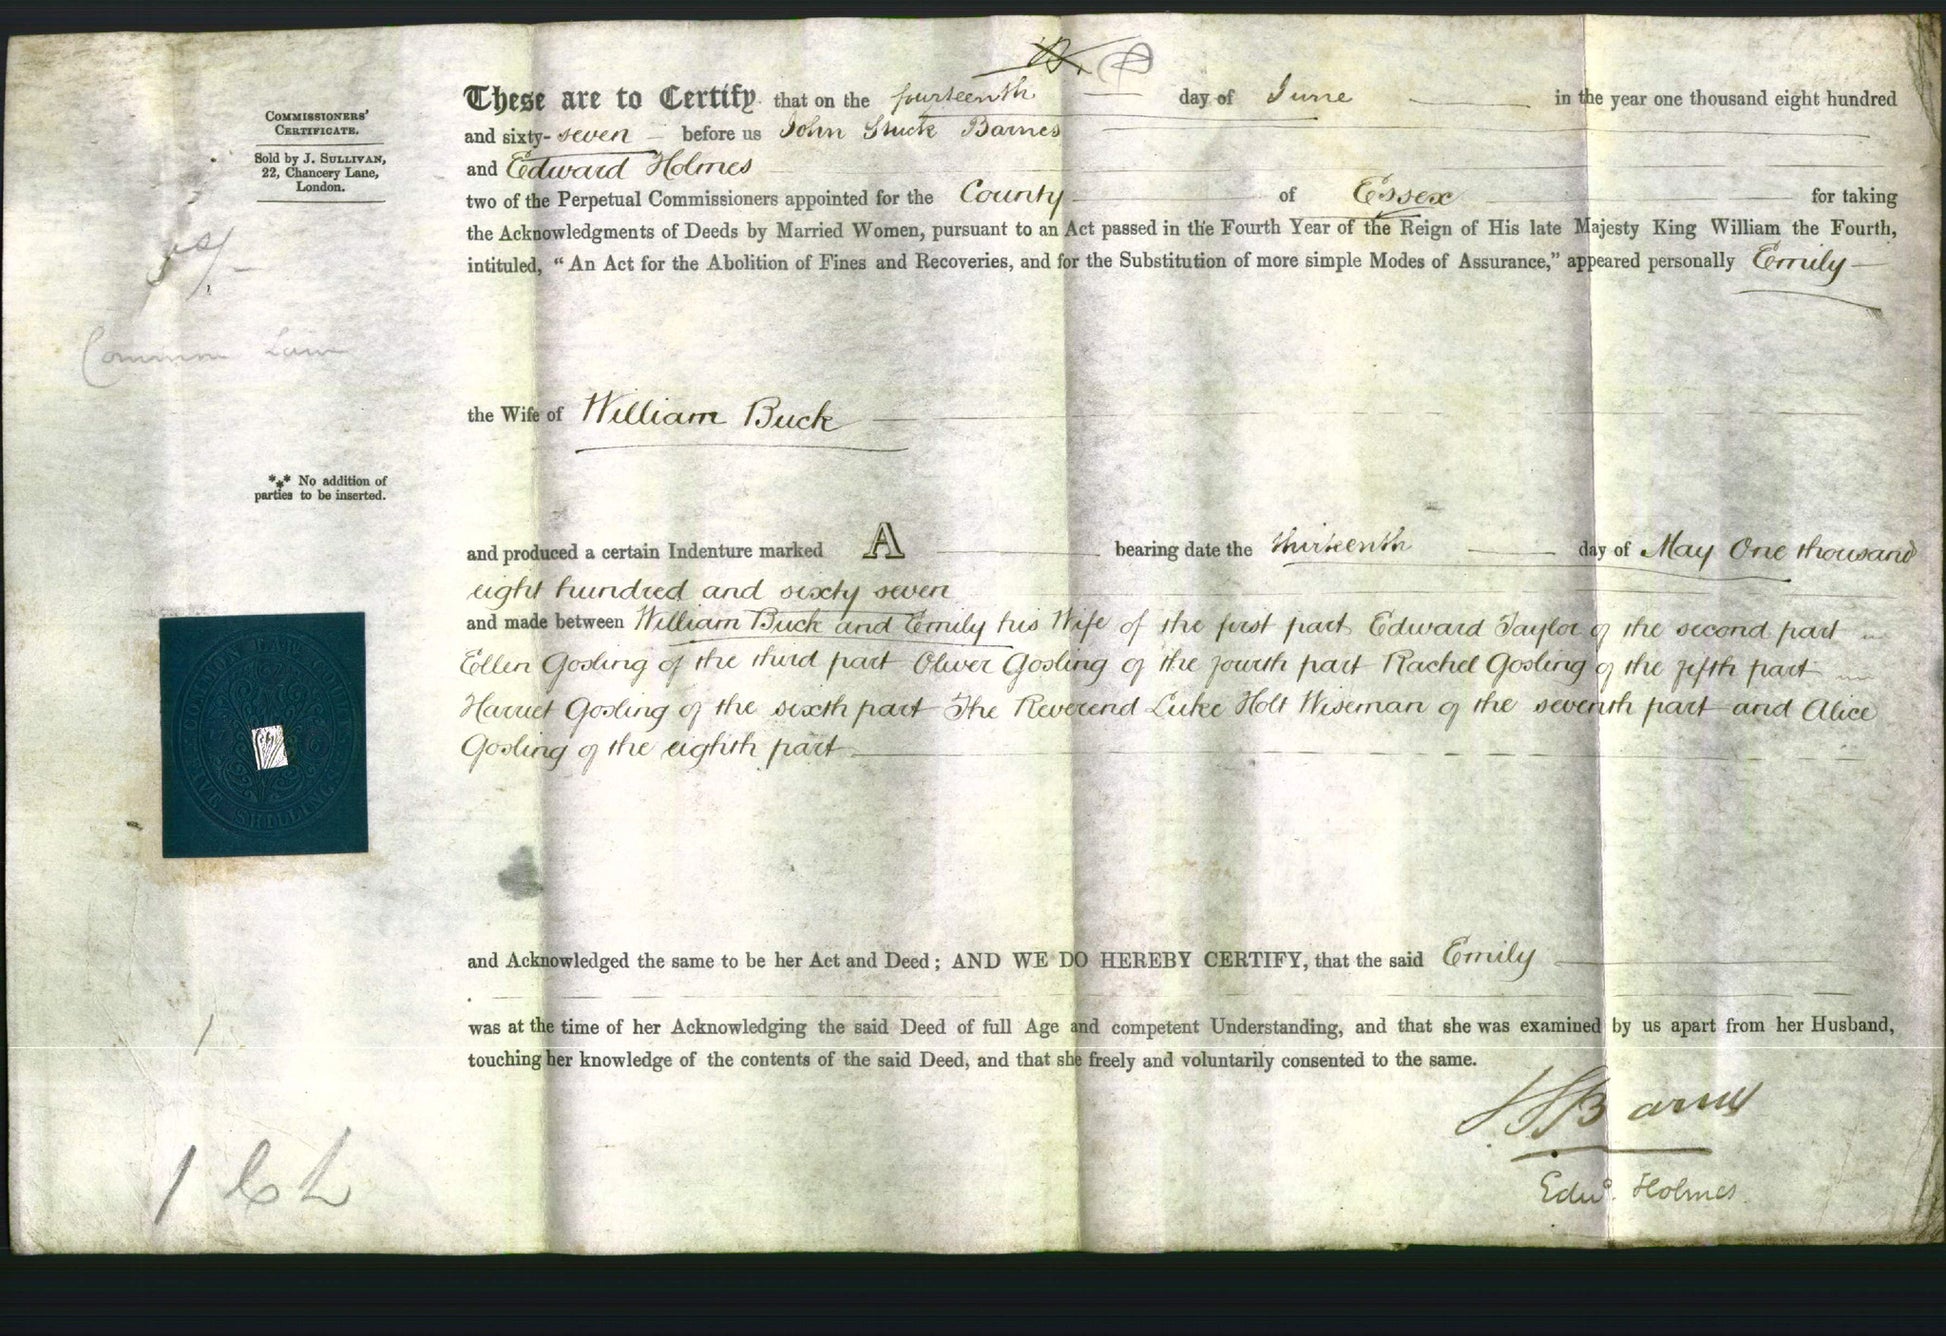 These are to Certify that on the fourteenth day of June in the year one thousand eight hundred
and sixty-seven before us John Stuck Barnes
and Edward Holmes
two of the Perpetual Commissioners appointed for the County of Essex for taking
the Acknowledgments of Deeds by Married Women, pursuant to an Act passed in the Fourth Year of the Reign of His late Majesty King William the Fourth,
intituled, "An Act for the Abolition of Fines and Recoveries, and for the Substitution of more simple Modes of Assurance," appeared personally Emily
the Wife of William Buck
and produced a certain Indenture marked A bearing date the thirteenth day of May One thousand
eight hundred and sixty seven
and made between William Buck and Emily his Wife of the first part Edward Taylor of the second part
Ellen Gosling of the third part Oliver Gosling of the fourth part Rachel Gosling of the fifth part
Harriet Gosling of the sixth part The Reverend Luke Holt Wiseman of the seventh part and Alice
Gosling of the eighth part
and Acknowledged the same to be her Act and Deed; AND WE DO HEREBY CERTIFY, that the said Emily
was at the time of her Acknowledging the said Deed of full Age and competent Understanding, and that she was examined by us apart from her Husband,
touching her knowledge of the contents of the said Deed, and that she freely and voluntarily consented to the same.
J S Barnes
Edwd. Holmes
COMMISSIONERS'
CERTIFICATE.
Sold by J. SULLIVAN,
22, Chancery Lane,
London.
Common Law
*** No addition of
parties to be inserted.
COMMON LAW COURTS
FIVE SHILLINGS